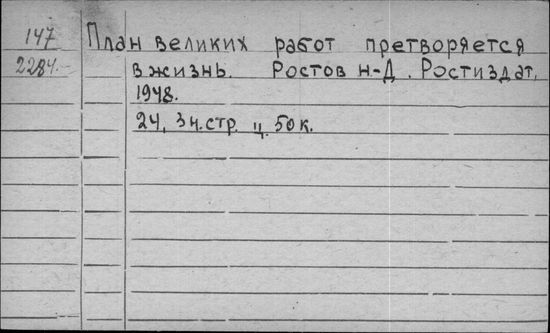 147 План великих работ претворяется
2284.— в жизнь. Ростов н-Д. Ростиздат,
1948.
24, 3н.стр. ц. 50к.